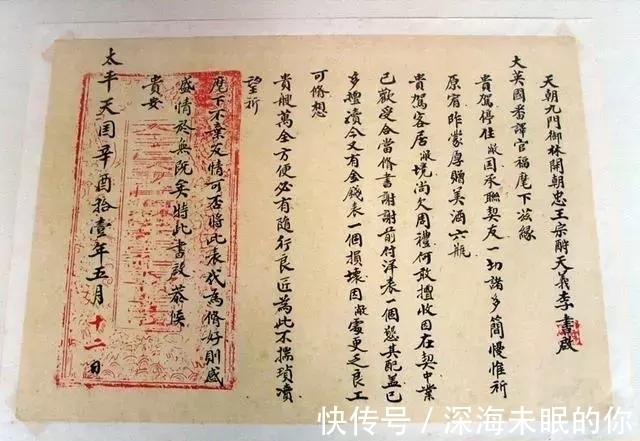 天朝九門御林開朝忠王宗天義李書啟
大英國番譯官福麾下茲緣
貴駕停住敝囯承聯契友一切諸多簡慢惟祈
原宥昨蒙厚贈美酒六瓶
貴駕客居敝境尚欠周禮何敢擅收因在契中業
已歡受合當脩書謝謝前付洋表一個懇其配蓋已
多擅瀆今又有金錢表一個損壞因敝處更乏良工
可脩想
貴艘萬全方便必有隨行良匠為此不揣瑣瀆
望祈
麾下不棄友情可否將此表代為脩好則感
盛情於無既矣特此書啟恭候
貴安
太平天囯辛酉拾壹年五月十二日
快传号/深海未眠的你